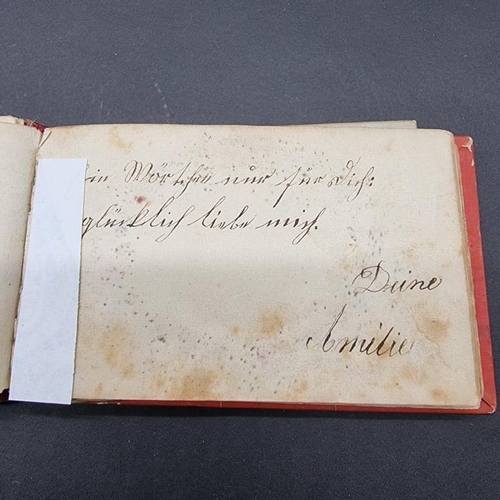 in Wörtchen nur für Dich:
glücklich liebe mich.
Deine
Amélie